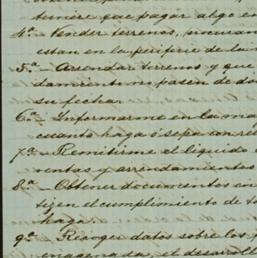 tuviere que pagar algo en
4ª Vender terrenos, procuran
estan en la periferie de la
5ª Arrendar terrenos y que
damiento no pasen de do
su fecha.
6ª Informarme en la ma
cuanto haga ó sepa con rel
7ª Remitirme el líquido
ventas y arrendamientos
8ª Obtener documentos en
tizen el cumplimiento de t
haga
9ª Recoger datos sobre los
enagenada, el desarroll